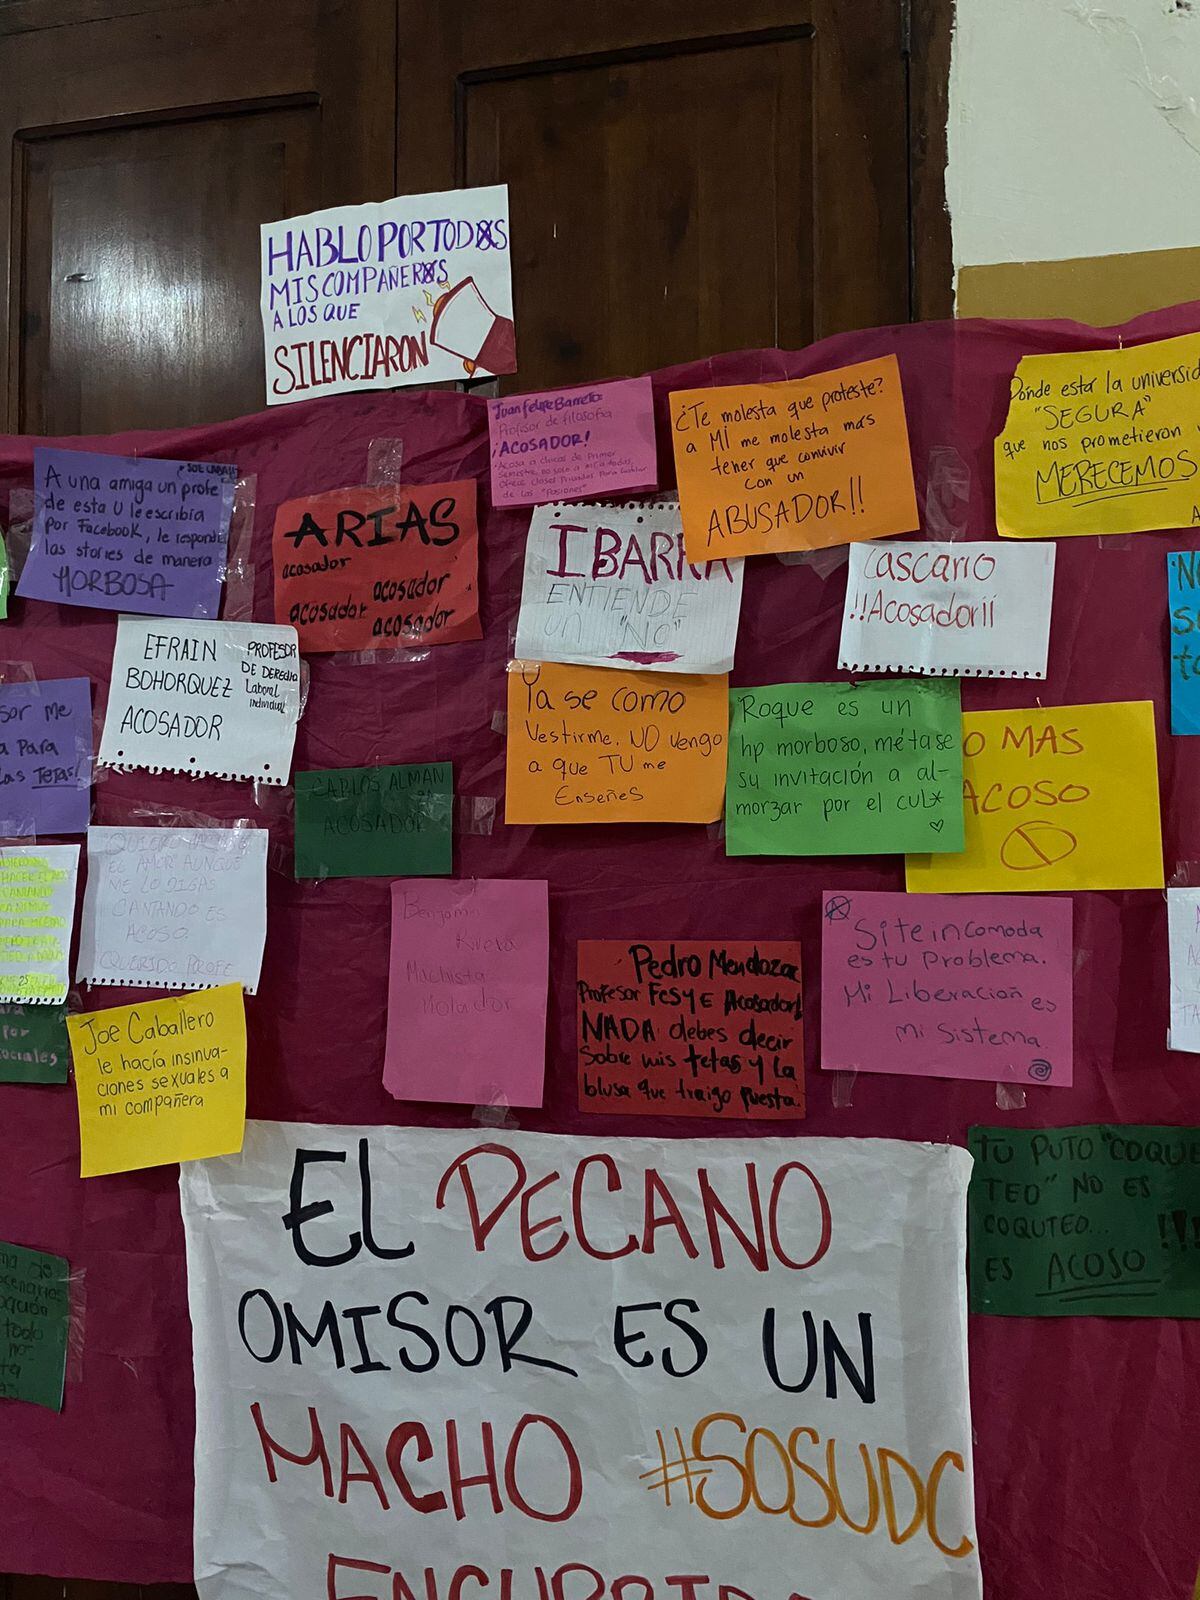 HABLO POR TODXS
MIS COMPAÑERXS
A LOS QUE
SILENCIARON
Juan Felipe Barreto:
Profesor de filosofía
¡ACOSADOR!
Acosa a chicas de Primer
Semestre, no solo a mi a todas.
¿Te molesta que proteste?
a MÍ me molesta más
tener que convivir
con un
ABUSADOR!!
Dónde esta la universid
"SEGURA"
que nos prometieron
MERECEMOS
A una amiga un profe
de esta U le escribía
por Facebook, le respondí
las stories de manera
MORBOSA
ARIAS
acosador
acosador
acosador
acosador
IBARRA
ENTIENDE
UN "NO"
Lascario
!!Acosador¡¡
EFRAIN
BOHORQUEZ
ACOSADOR
PROFESOR
DE DERECHO
Laboral
individual
sor me
a para
las TETAS
Ya se como
Vestirme. NO vengo
a que TU me
Enseñes
Roque es un
hp morboso, métase
su invitación a al-
morzar por el cul*
O MAS
ACOSO
CARLOS ALMAN
ACOSADOR
EL AMOR AUNQUE
ME LO DIGAS
CANTANDO ES
ACOSO.
QUERIDO PROFE
Benjamin
Rivera
Machista
Violador
Pedro Mendoza
Profesor FCSYE Acosador!
NADA debes decir
Sobre mis tetas y la
blusa que traigo puesta.
Si te incomoda
es tu problema.
Mi Liberación es
mi sistema.
por
sociales
Joe Caballero
le hacía insinua-
ciones sexuales a
mi compañera
TU PUTO "COQUE
TEO" NO ES
COQUTEO...
ES ACOSO !!!
todo
EL DECANO
OMISOR ES UN
MACHO #SOSUDC